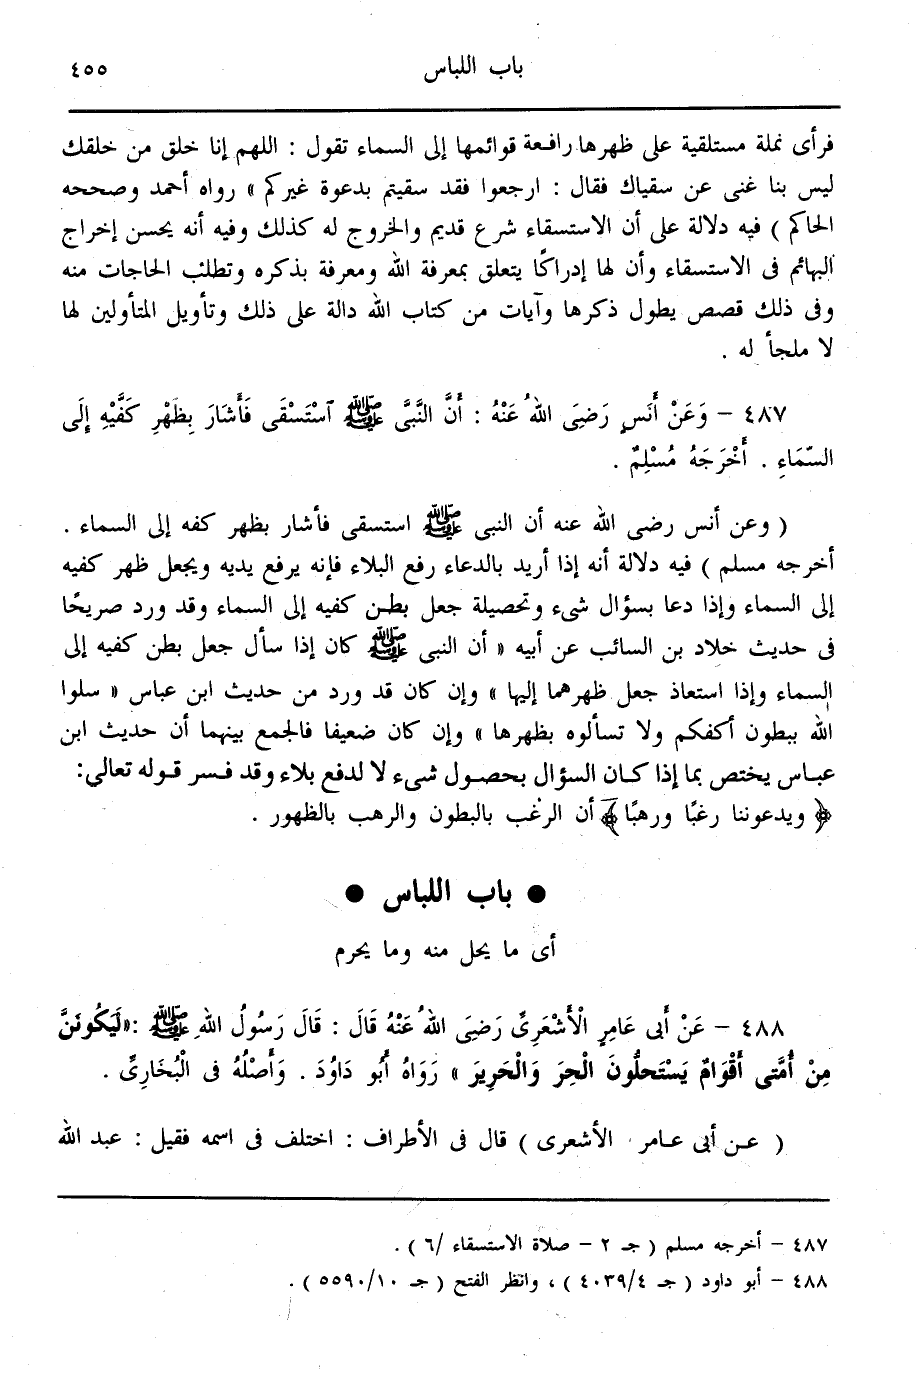 باب اللباس ٤٥٥
فرأى نملة مستلقية على ظهرها رافعة قوائمها إلى السماء تقول : اللهم إنا خلق من خلقك
ليس بنا غنى عن سقياك فقال : ارجعوا فقد سقيتم بدعوة غيركم » رواه أحمد وصححه
الحاكم ) فيه دلالة على أن الاستسقاء شرع قديم والخروج له كذلك وفيه أنه يحسن إخراج
البهائم فى الاستسقاء وأن لها إدراكًا يتعلق بمعرفة الله ومعرفة بذكره وتطلب الحاجات منه
وفى ذلك قصص يطول ذكرها وآيات من كتاب الله دالة على ذلك وتأويل المتأولين لها
لا ملجأ له .
٤٨٧ – وَعَنْ أَنَسٍ رَضِىَ اللهُ عَنْهُ : أَنَّ النَّبِىَّ ﷺ ٱسْتَسْقَى فَأَشَارَ بِظَهْرِ كَفَّيْهِ إِلَى
السَّمَاءِ . أَخْرَجَهُ مُسْلِمٌ .
( وعن أنس رضى الله عنه أن النبى ﷺ استسقى فأشار بظهر كفه إلى السماء .
أخرجه مسلم ) فيه دلالة أنه إذا أريد بالدعاء رفع البلاء فإنه يرفع يديه ويجعل ظهر كفيه
إلى السماء وإذا دعا بسؤال شىء وتحصيلة جعل بطن كفيه إلى السماء وقد ورد صريحًا
فى حديث خلاد بن السائب عن أبيه « أن النبى ﷺ كان إذا سأل جعل بطن كفيه إلى
السماء وإذا استعاذ جعل ظهرهما إليها » وإن كان قد ورد من حديث ابن عباس « سلوا
الله ببطون أكفكم ولا تسألوه بظهرها » وإن كان ضعيفا فالجمع بينهما أن حديث ابن
عباس يختص بما إذا كان السؤال بحصول شىء لا لدفع بلاء وقد فسر قوله تعالى:
﴿ ويدعوننا رغبًا ورهبًا ﴾ أن الرغب بالبطون والرهب بالظهور .
● باب اللباس ●
أى ما يحل منه وما يحرم
٤٨٨ – عَنْ أَبِى عَامِرٍ الْأَشْعَرِىِّ رَضِىَ اللهُ عَنْهُ قَالَ : قَالَ رَسُولُ اللهِ ﷺ :«لَيَكُونَنَّ
مِنْ أُمَّتِى أَقْوَامٌ يَسْتَحلُّونَ الْحِرَ وَالْحَرِيرَ » رَوَاهُ أَبُو دَاوُدَ . وَأَصْلُهُ فى الْبُخَارِىِّ .
( عن أبى عامر الأشعرى ) قال فى الأطراف : اختلف فى اسمه فقيل : عبد الله
٤٨٧ – أخرجه مسلم ( جـ ٢ – صلاة الاستسقاء /٦ ) .
٤٨٨ – أبو داود ( جـ ٤٠٣٩/٤ ) ، وانظر الفتح ( جـ ٥٥٩٠/١٠ ) .